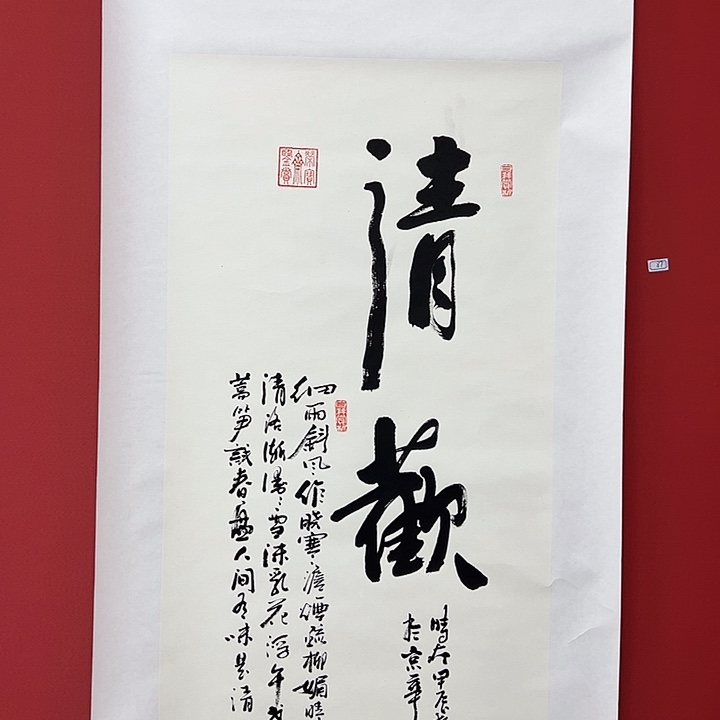 清歡
時在甲辰
於京華
細雨斜風作曉寒淡煙疏柳媚晴
清洛漸漫漫雪沫乳花浮午
蒿笋試春盤人间有味是清
27